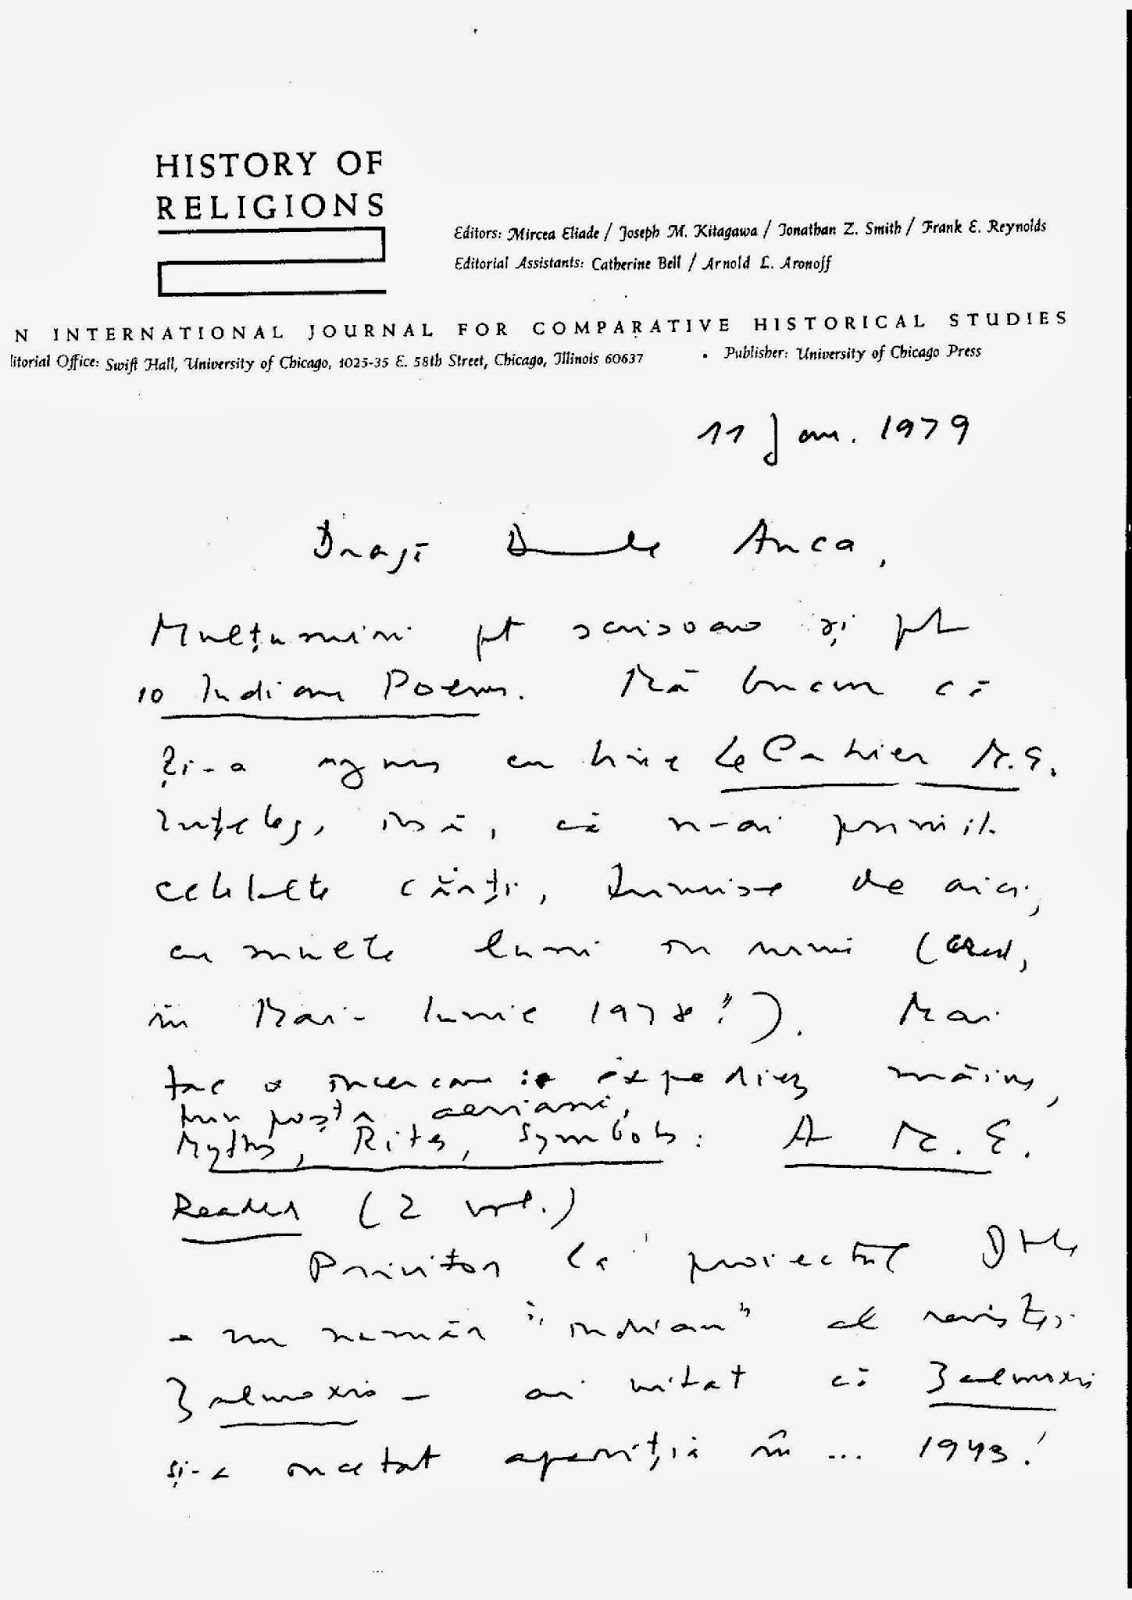 HISTORY OF
RELIGIONS
Editors: Mircea Eliade / Joseph M. Kitagawa / Jonathan Z. Smith / Frank E. Reynolds
Editorial Assistants: Catherine Bell / Arnold L. Aronoff
N INTERNATIONAL JOURNAL FOR COMPARATIVE HISTORICAL STUDIES
litorial Office: Swift Hall, University of Chicago, 1025-35 E. 58th Street, Chicago, Illinois 60637 • Publisher: University of Chicago Press
11 Jan. 1979
Dragă Dle Anca,
Mulțumiri pt scrisoare și pt
10 Indian Poems. Mă bucur că
ți-a ajuns cu bine Le Cahier M.E.
Înțeleg, însă, că n-ai primit
celelalte cărți, trimise de aici,
cu multe luni în urmă (cred,
în Mai-Iunie 1978!). Mai
fac o încercare: expediez mâine,
prin poșta aeriană,
Myths, Rites, Symbols: A M.E.
Reader (2 vol.)
Privitor la proiectul Dtle
- un număr "indian" al revistei
Zalmoxis - ai uitat că Zalmoxis
și-a încetat apariția în ... 1943!